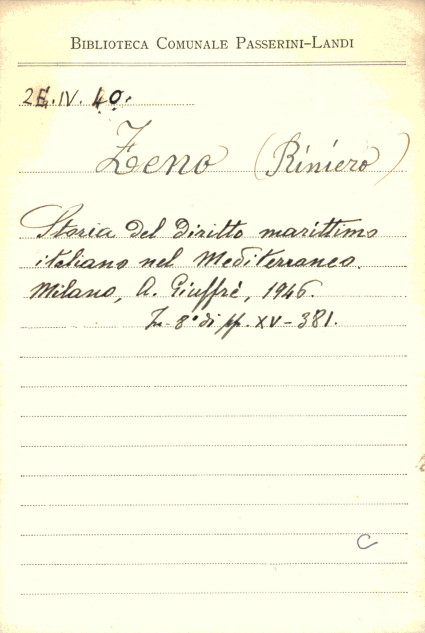 BIBLIOTECA COMUNALE PASSERINI-LANDI
2E.IV.40.
Zeno (Riniero)
Storia del diritto marittimo
italiano nel Mediterraneo.
Milano, A. Giuffrè, 1946.
In-8° di pp. XV-381.
C